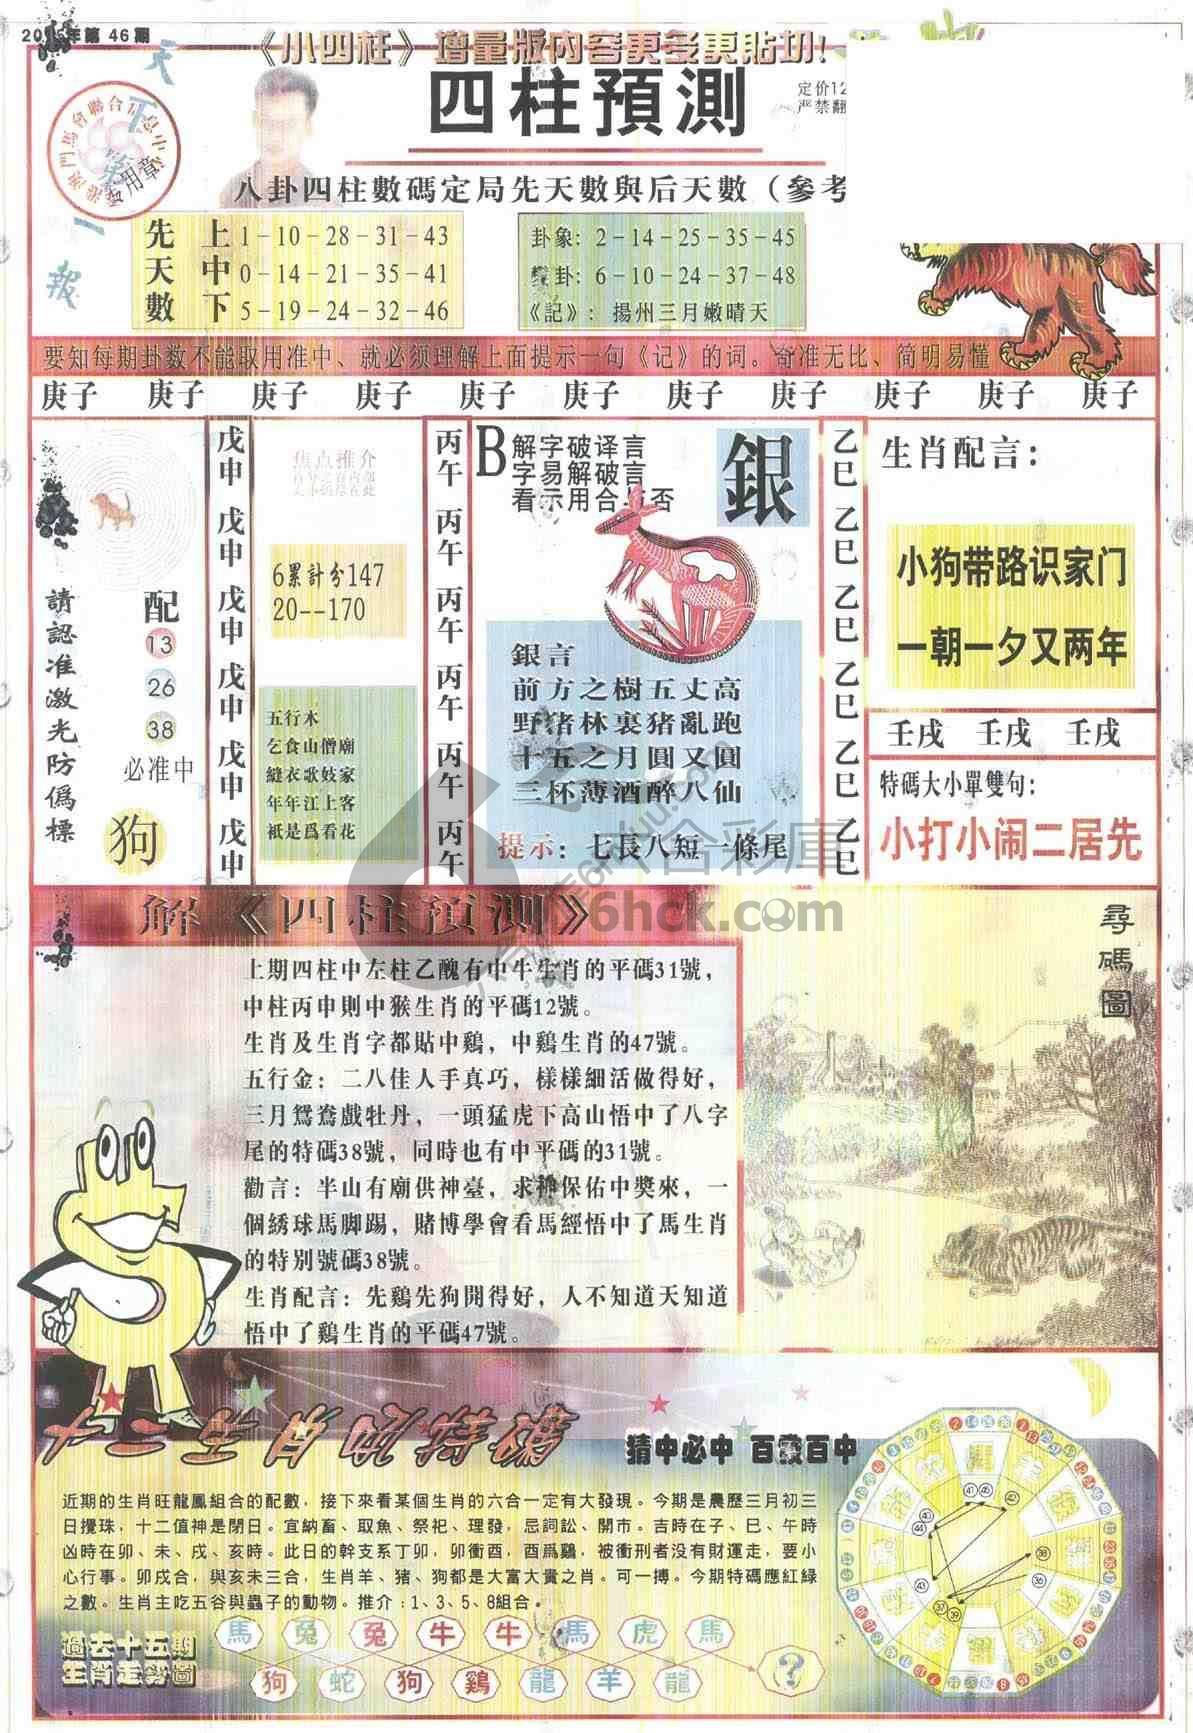 年第 46 期
《小四柱》增量版内容更多更貼切!
四柱預測
定价12
严禁翻
八卦四柱數碼定局先天數與后天數（參考
天
下
第
一
報
先天數
上 1-10-28-31-43
中 0-14-21-35-41
下 5-19-24-32-46
卦象: 2-14-25-35-45
變卦: 6-10-24-37-48
《記》: 揚州三月嫩晴天
要知每期卦数不能取用准中、就必须理解上面提示一句《记》的词。奇准无比、简明易懂
庚子 庚子 庚子 庚子 庚子 庚子 庚子 庚子 庚子 庚子 庚子
請認准激光防僞標
配
13
26
38
必准中
狗
戊申 戊申 戊申 戊申 戊申 戊申
焦点推介
6累計兮147
20--170
五行木
乞食山僧廟
縫衣歌妓家
年年江上客
衹是爲看花
丙午 丙午 丙午 丙午 丙午 丙午
B
解字破译言
字易解破言
看示用合与否
銀
銀言
前方之樹五丈高
野猪林裏猪亂跑
十五之月圓又圓
三杯薄酒醉八仙
提示: 七長八短一條尾
乙巳 乙巳 乙巳 乙巳 乙巳 乙巳
生肖配言:
小狗带路识家门
一朝一夕又两年
壬戌 壬戌 壬戌
特碼大小單雙句:
小打小闹二居先
六合彩庫
6hck.com
解《四柱預測》
上期四柱中左柱乙醜有中牛生肖的平碼31號，
中柱丙申則中猴生肖的平碼12號。
生肖及生肖字都貼中鷄，中鷄生肖的47號。
五行金: 二八佳人手真巧，樣樣細活做得好，
三月鴛鴦戲牡丹，一頭猛虎下高山悟中了八字
尾的特碼38號，同時也有中平碼的31號。
勸言: 半山有廟供神臺，求神保佑中獎來，一
個綉球馬脚踢，賭博學會看馬經悟中了馬生肖
的特别號碼38號。
生肖配言: 先鷄先狗開得好，人不知道天知道
悟中了鷄生肖的平碼47號。
尋碼圖
猜中必中 百發百中
近期的生肖旺龍鳳組合的配數，接下來看某個生肖的六合一定有大發現。今期是農歷三月初三
日攪珠，十二值神是閉日。宜納畜、取魚、祭祀、理發，忌詞訟、開市。吉時在子、巳、午時
凶時在卯、未、戌、亥時。此日的幹支系丁卯，卯衝酉，酉爲鷄，被衝刑者没有財運走，要小
心行事。卯戌合，與亥未三合，生肖羊、猪、狗都是大富大貴之肖。可一搏。今期特碼應紅綠
之數。生肖主吃五谷與蟲子的動物。推介:1、3、5、8組合。
過去十五期
生肖走勢圖
馬 兔 兔 牛 牛 馬 虎 馬
狗 蛇 狗 鷄 龍 羊 龍 ?